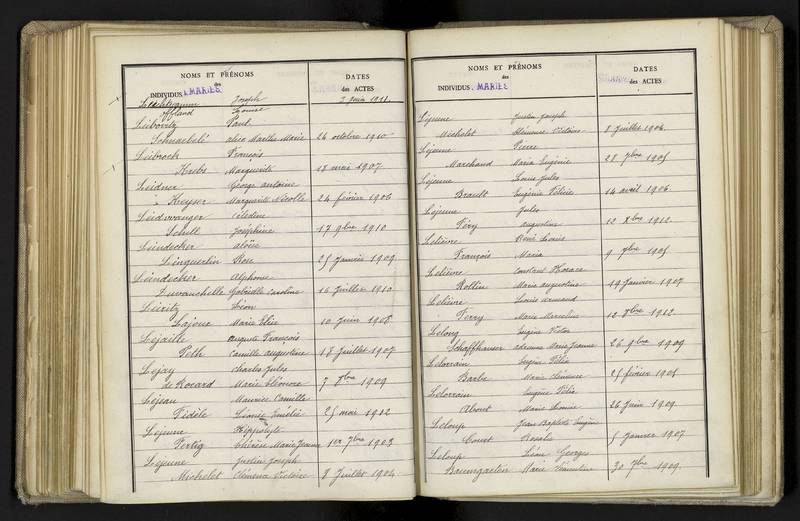 NOMS ET PRÉNOMS DATES
des
INDIVIDUS MARIÉS des ACTES
Joseph 2 juin 1911
Offland Louise
Leibovitz Paul
Schnaebelé alice Marthe Marie 26 octobre 1910
Leibrock François
Krebs Marguerite 18 mai 1907
Leidner George antoine
Keyser Marguerite Nicolle 24 février 1906
Leidwanger Célédine
Schell Joséphine 17 9bre 1910
Leindecker aloïse
Linquerlin Rose 25 Janvier 1909
Leindecker Alphonse
Duvanchelle Gabrielle Caroline 16 Juillet 1910
Léiritz Léon
Lajoue Marie Elise 10 Juin 1908
Lejaille auguste François
Peth Camille augustine 18 Juillet 1907
Lejay Charles Jules
de Rocard Marie Eléonore 7 8bre 1909
Lejean Maurice Camille
Fidèle Léonie Emélie 25 mai 1912
Lejeune Hippolyte
Fertig Thérèse Marie Jeanne 1er 7bre 1903
Lejeune Justin Joseph
Michelet Clémence Victoire 8 Juillet 1904
NOMS ET PRÉNOMS DATES
des
INDIVIDUS MARIÉS des ACTES
Lejeune Justin Joseph
Michelet Clémence Victoire 8 Juillet 1904
Lejeune Pierre
Marchand Maria Eugénie 28 7bre 1905
Lejeune Louis Jules
Brault Eugénie Félicie 14 avril 1906
Lejeune Jules
Féry augustine 12 Xbre 1912
Lelièvre René Louis
François Maria 9 7bre 1905
Lelièvre Constant Horace
Rollin Marie augustine 19 Janvier 1907
Lelièvre Louis armand
Ferry Marie Marceline 12 8bre 1912
Lelong Eugène Victor
Schaffhauser adrienne Marie Jeanne 26 9bre 1909
Lelorrain Eugène Félix
Barbe Marie Clémence 25 février 1905
Lelorrain Eugène Félix
Marie Louise 26 Juin 1909
Leloup Jean Baptiste Eugène
Couet Rosalie 5 Janvier 1907
Leloup Léon Georges
Baumgarten Marie 30 7bre 1909